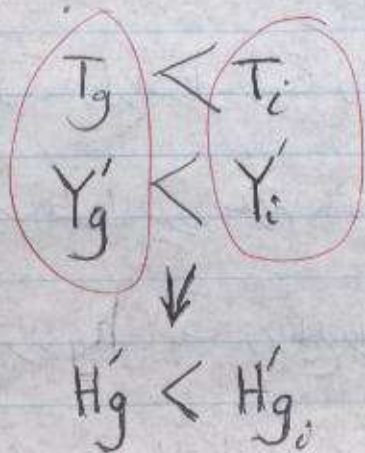 Tg < Ti
Y'g < Y'i
↓
H'g < H'gi